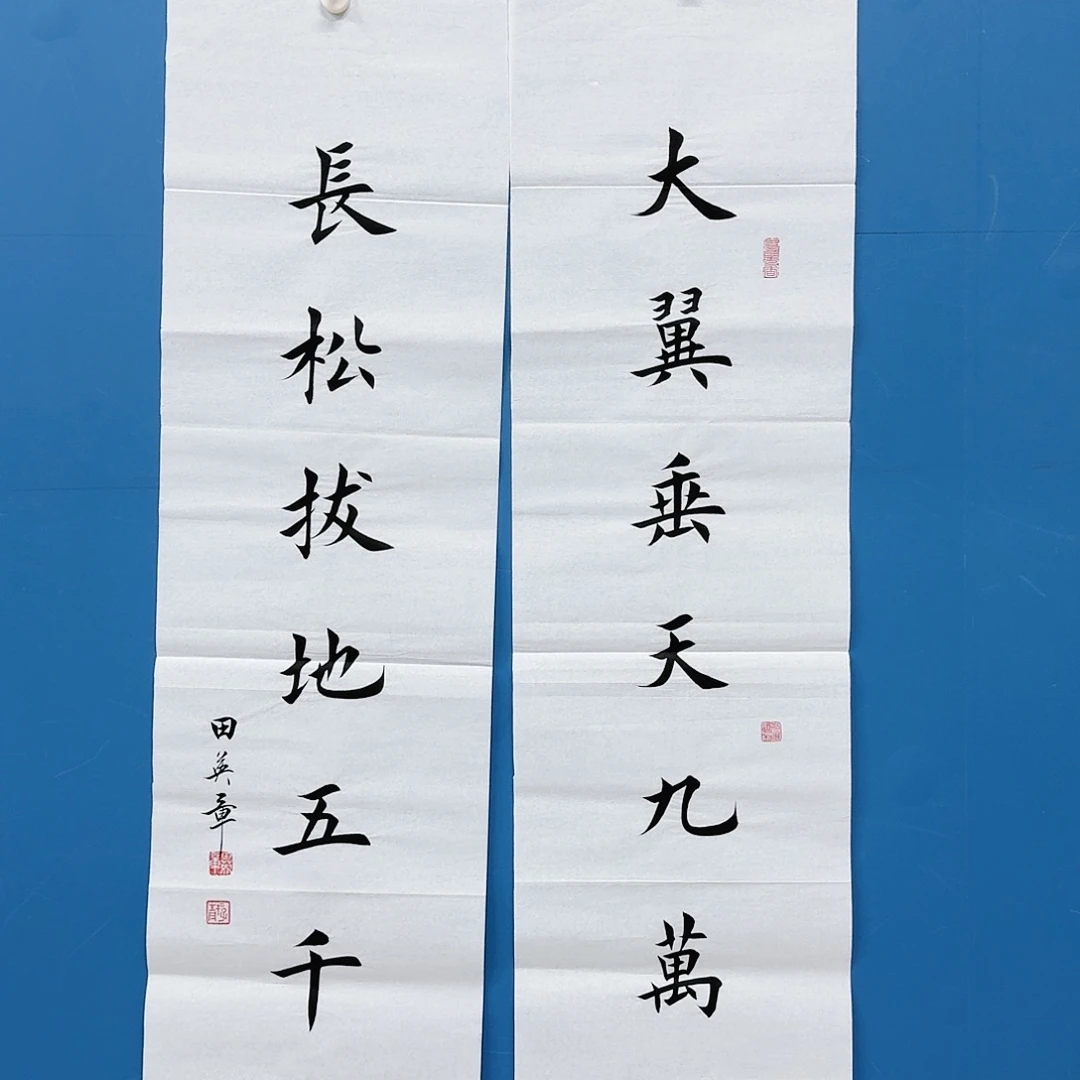 大翼垂天九萬
長松拔地五千
田英章